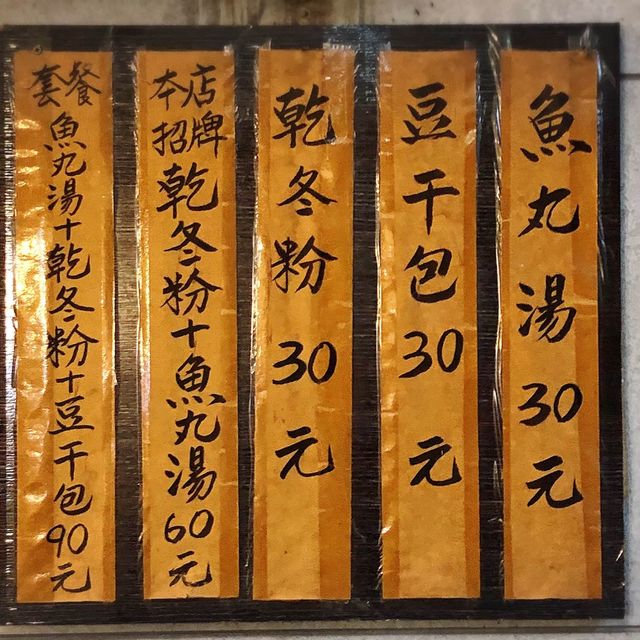 魚丸湯30元
豆干包30元
乾冬粉30元
本店招牌
乾冬粉+魚丸湯60元
套餐
魚丸湯+乾冬粉+豆干包90元